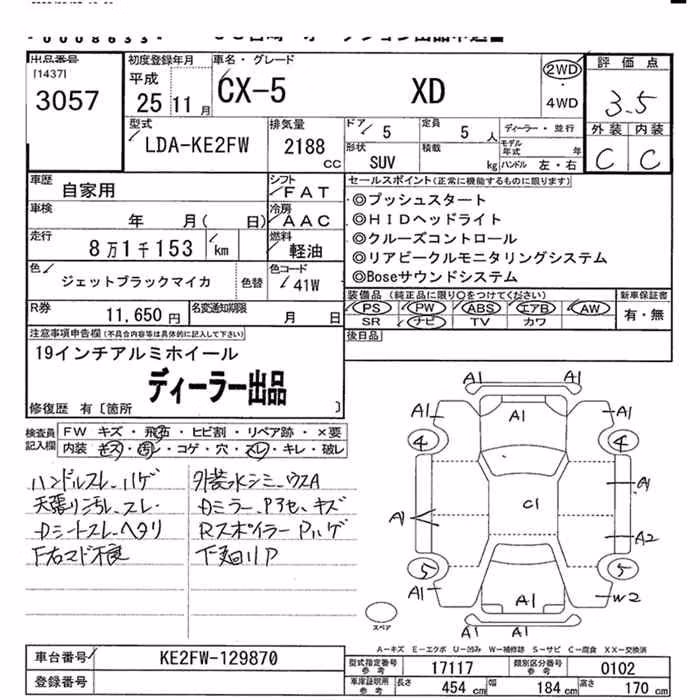 出品番号
[1437]
3057
初度登録年月
平成
25 11月
車名・グレード
CX-5 XD
2WD
・
4WD
評価点
3.5
外装 内装
C C
型式
LDA-KE2FW
排気量
2188
cc
ドア 5
定員 5 人
ディーラー・並行
形状
SUV
積載 kg
モデル年式 年
ハンドル 左・右
車歴
自家用
シフト
FAT
車検
年 月( 日)
冷房
AAC
走行
8万1千153 km
燃料
軽油
色
ジェットブラックマイカ
色替
色コード
41W
R券
11,650 円
名変通知期限
月 日
セールスポイント(正常に機能するものに限ります)
◎プッシュスタート
◎HIDヘッドライト
◎クルーズコントロール
◎リアビークルモニタリングシステム
◎Boseサウンドシステム
装備品(純正品に限り○をつけてください)
新車保証書
PS PW ABS エアB AW
SR ナビ TV カワ
有・無
後日品
注意事項申告欄(不具合内容等は具体的に記入して下さい)
19インチアルミホイール
ディーラー出品
修復歴 有〔箇所 〕
検査員
記入欄
FW キズ・飛石・ヒビ割・リペア跡・×要
内装 キズ・汚レ・コゲ・穴・スレ・キレ・破レ
ハンドルスレ、ハゲ
天張リ汚レ、スレ
Dシートスレ、ヘタリ
外装水シミ、ウスA
Dミラー、Pアセ、キズ
Rスポイラー Pハゲ
A1 A1
A1 A1 A1
4 4
A1 C1 A1
A2
5 5
A1 A1 W2
A1 A1
スペア
A-キズ E-エクボ U-凹み W-補修跡 S-サビ C-腐食 XX-交換済
車台番号
KE2FW-129870
登録番号
型式指定番号
参考
17117
類別区分番号
参考
0102
車庫証明用
参考
長さ 454 cm
幅 184 cm
高さ 170 cm